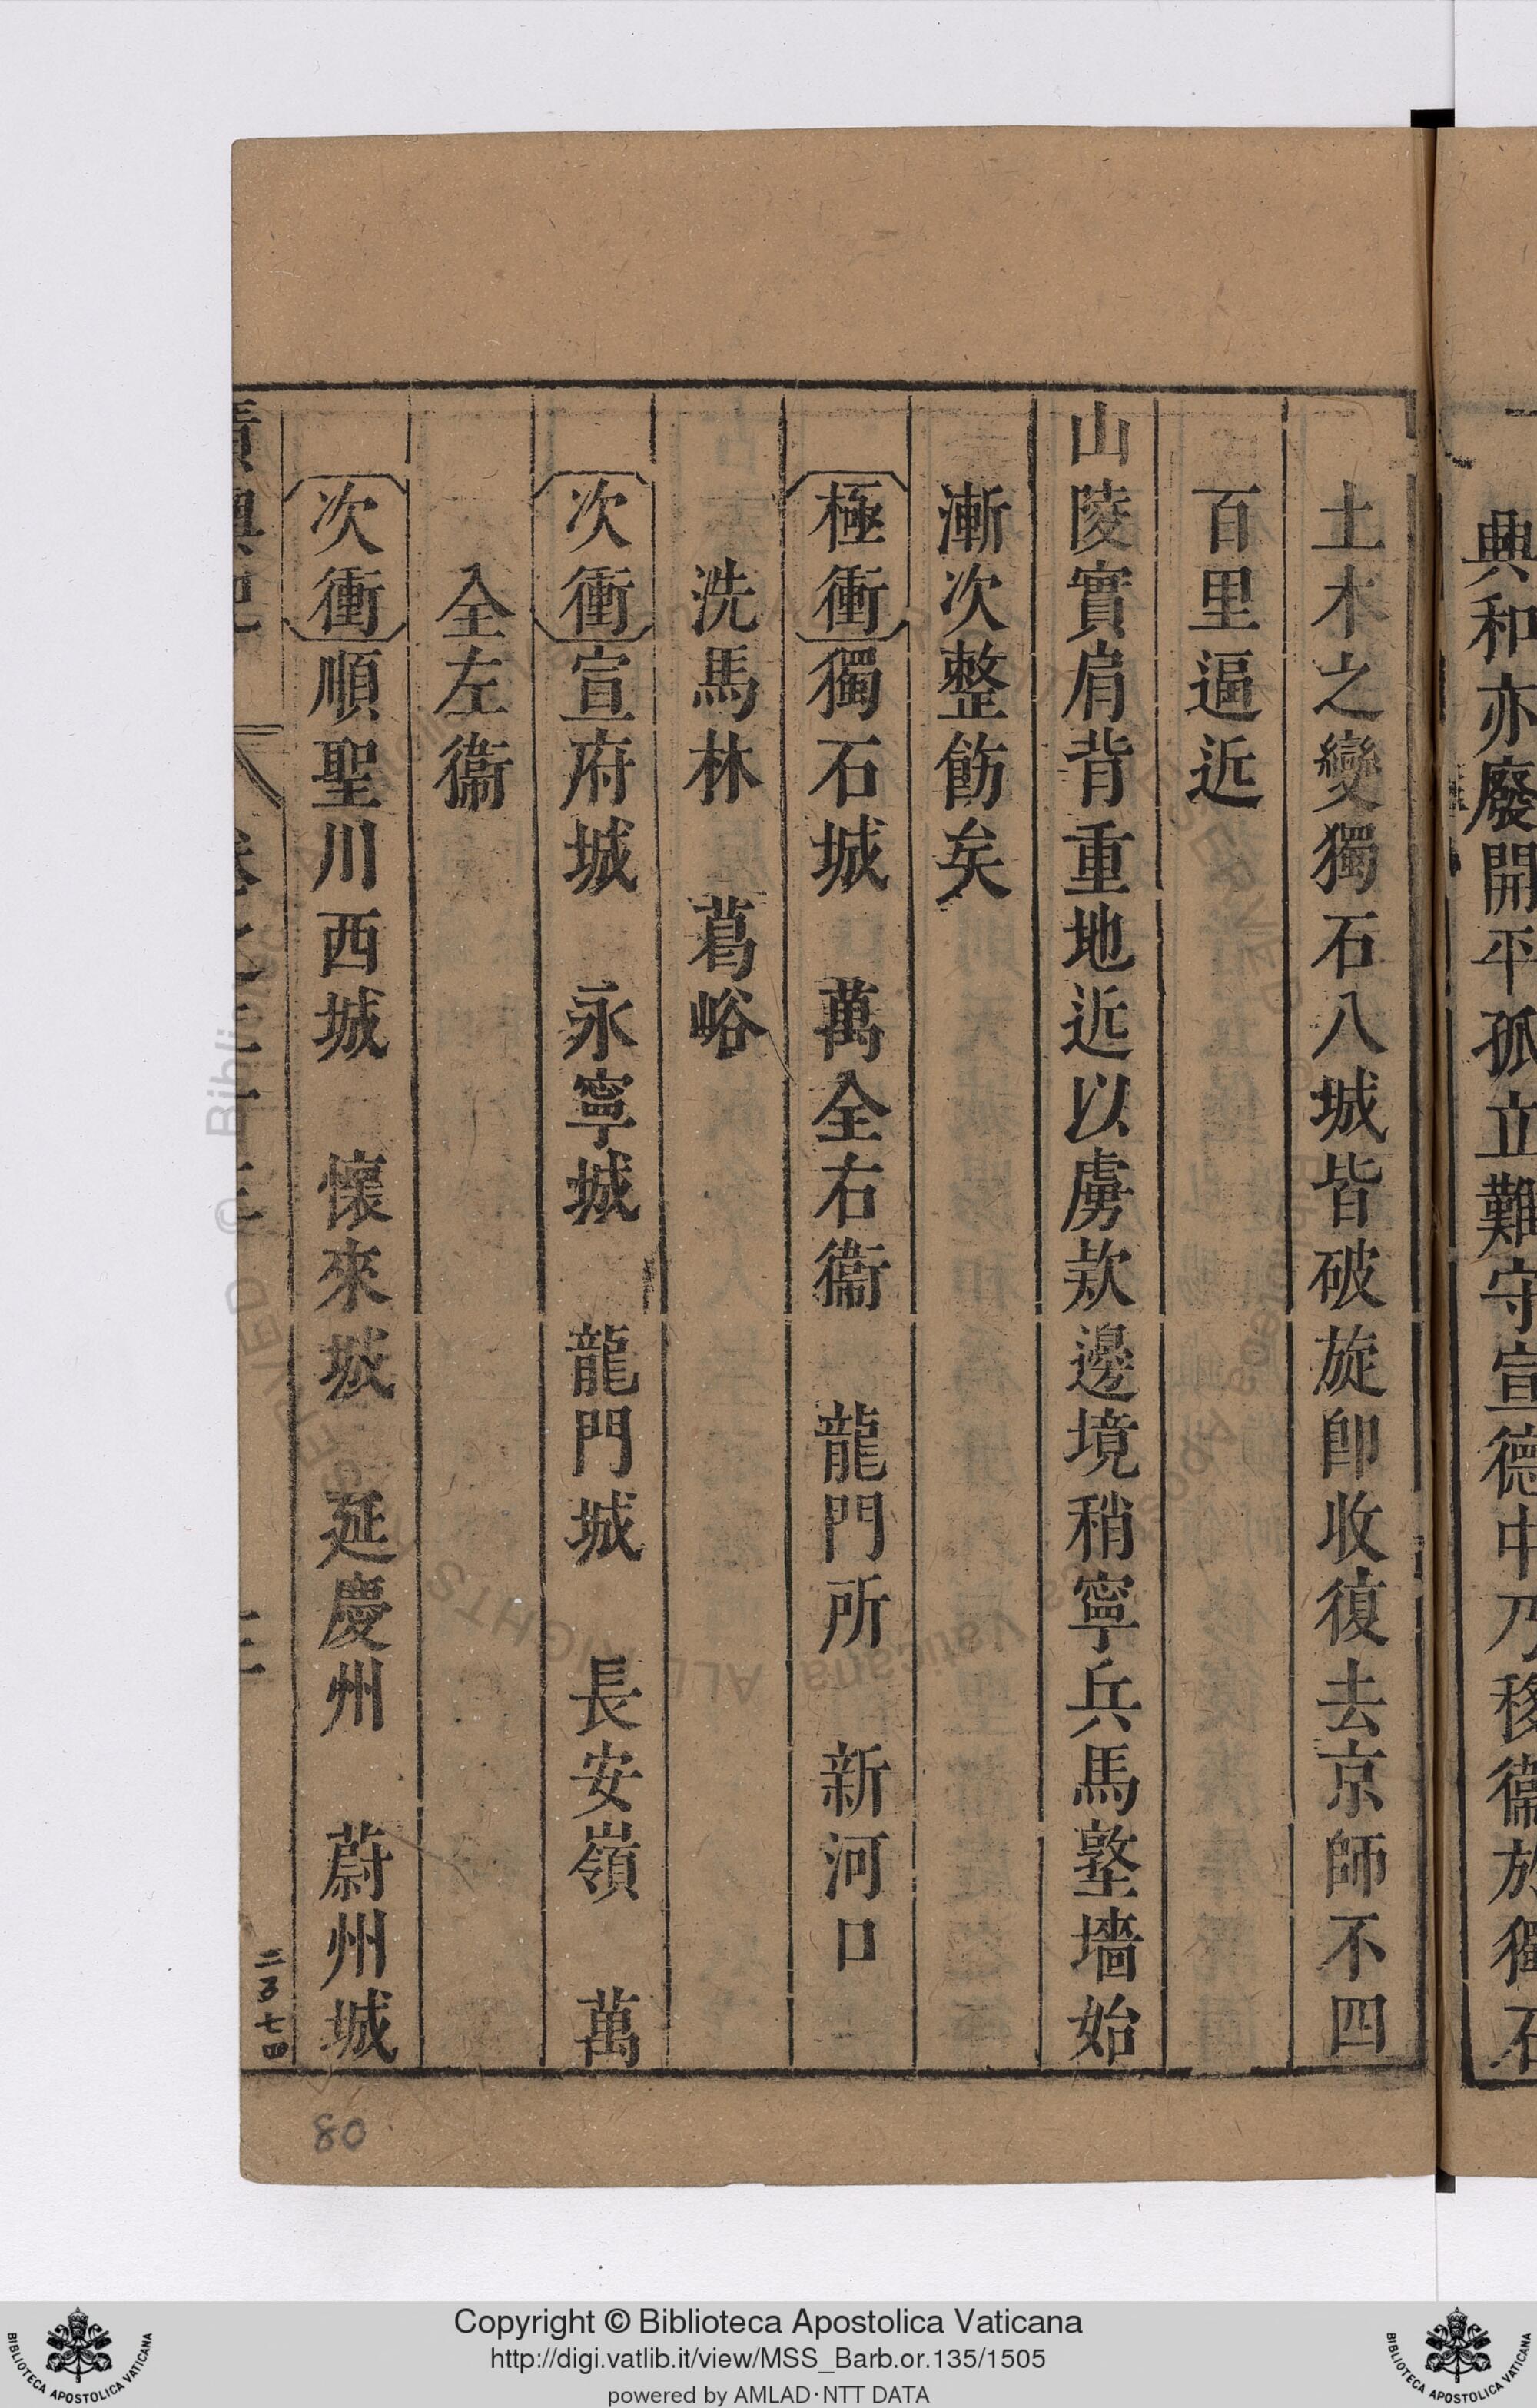 典和亦廢開平孤立難守宣德中乃移衞於獨石
土木之變獨石八城皆破旋卽收復去京師不四
百里逼近
山陵實肩背重地近以虜款邊境稍寧兵馬墪墻始
漸次整飭矣
極衝 獨石城 萬全右衞 龍門所 新河口
洗馬林 葛峪
次衝 宣府城 永寧城 龍門城 長安嶺 萬
全左衞
次衝 順聖川西城 懷來城 延慶州 蔚州城
80
Copyright © Biblioteca Apostolica Vaticana
http://digi.vatlib.it/view/MSS_Barb.or.135/1505
powered by AMLAD·NTT DATA
BIBLIOTECA APOSTOLICA VATICANA
BIBLIOTECA APOSTOLICA VATICANA